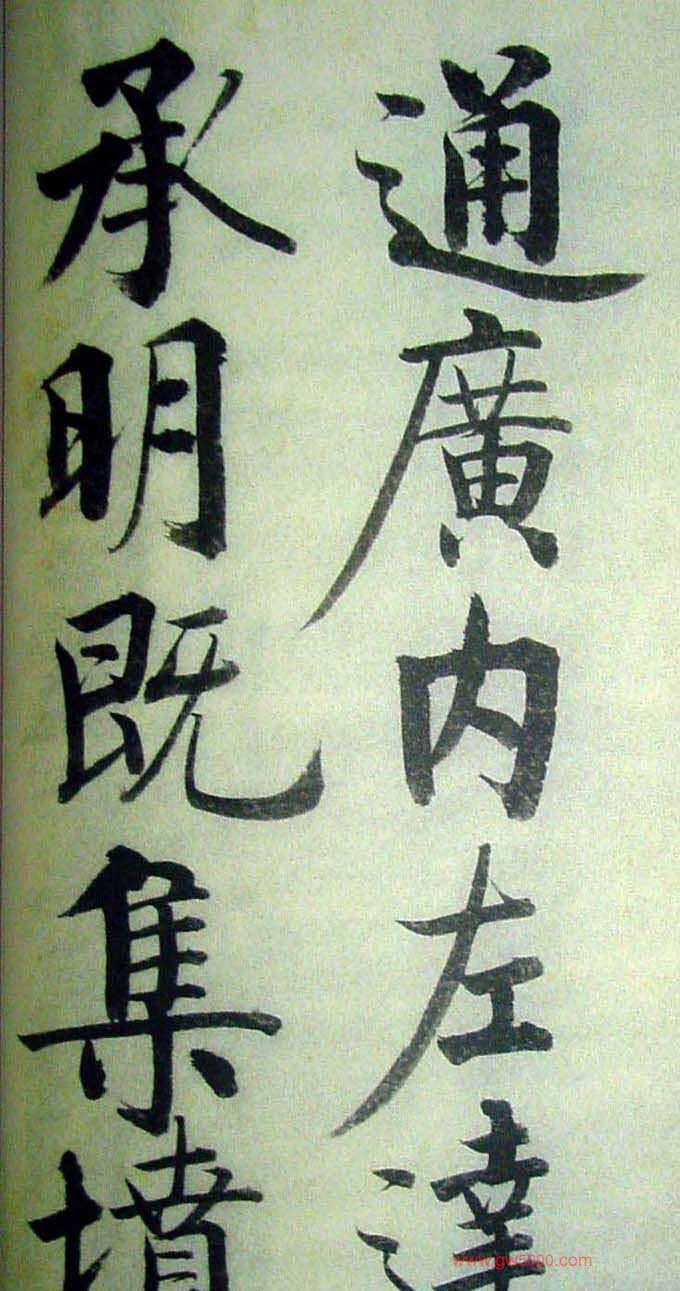 通廣内左達
承明既集墳
www.gw5000.com